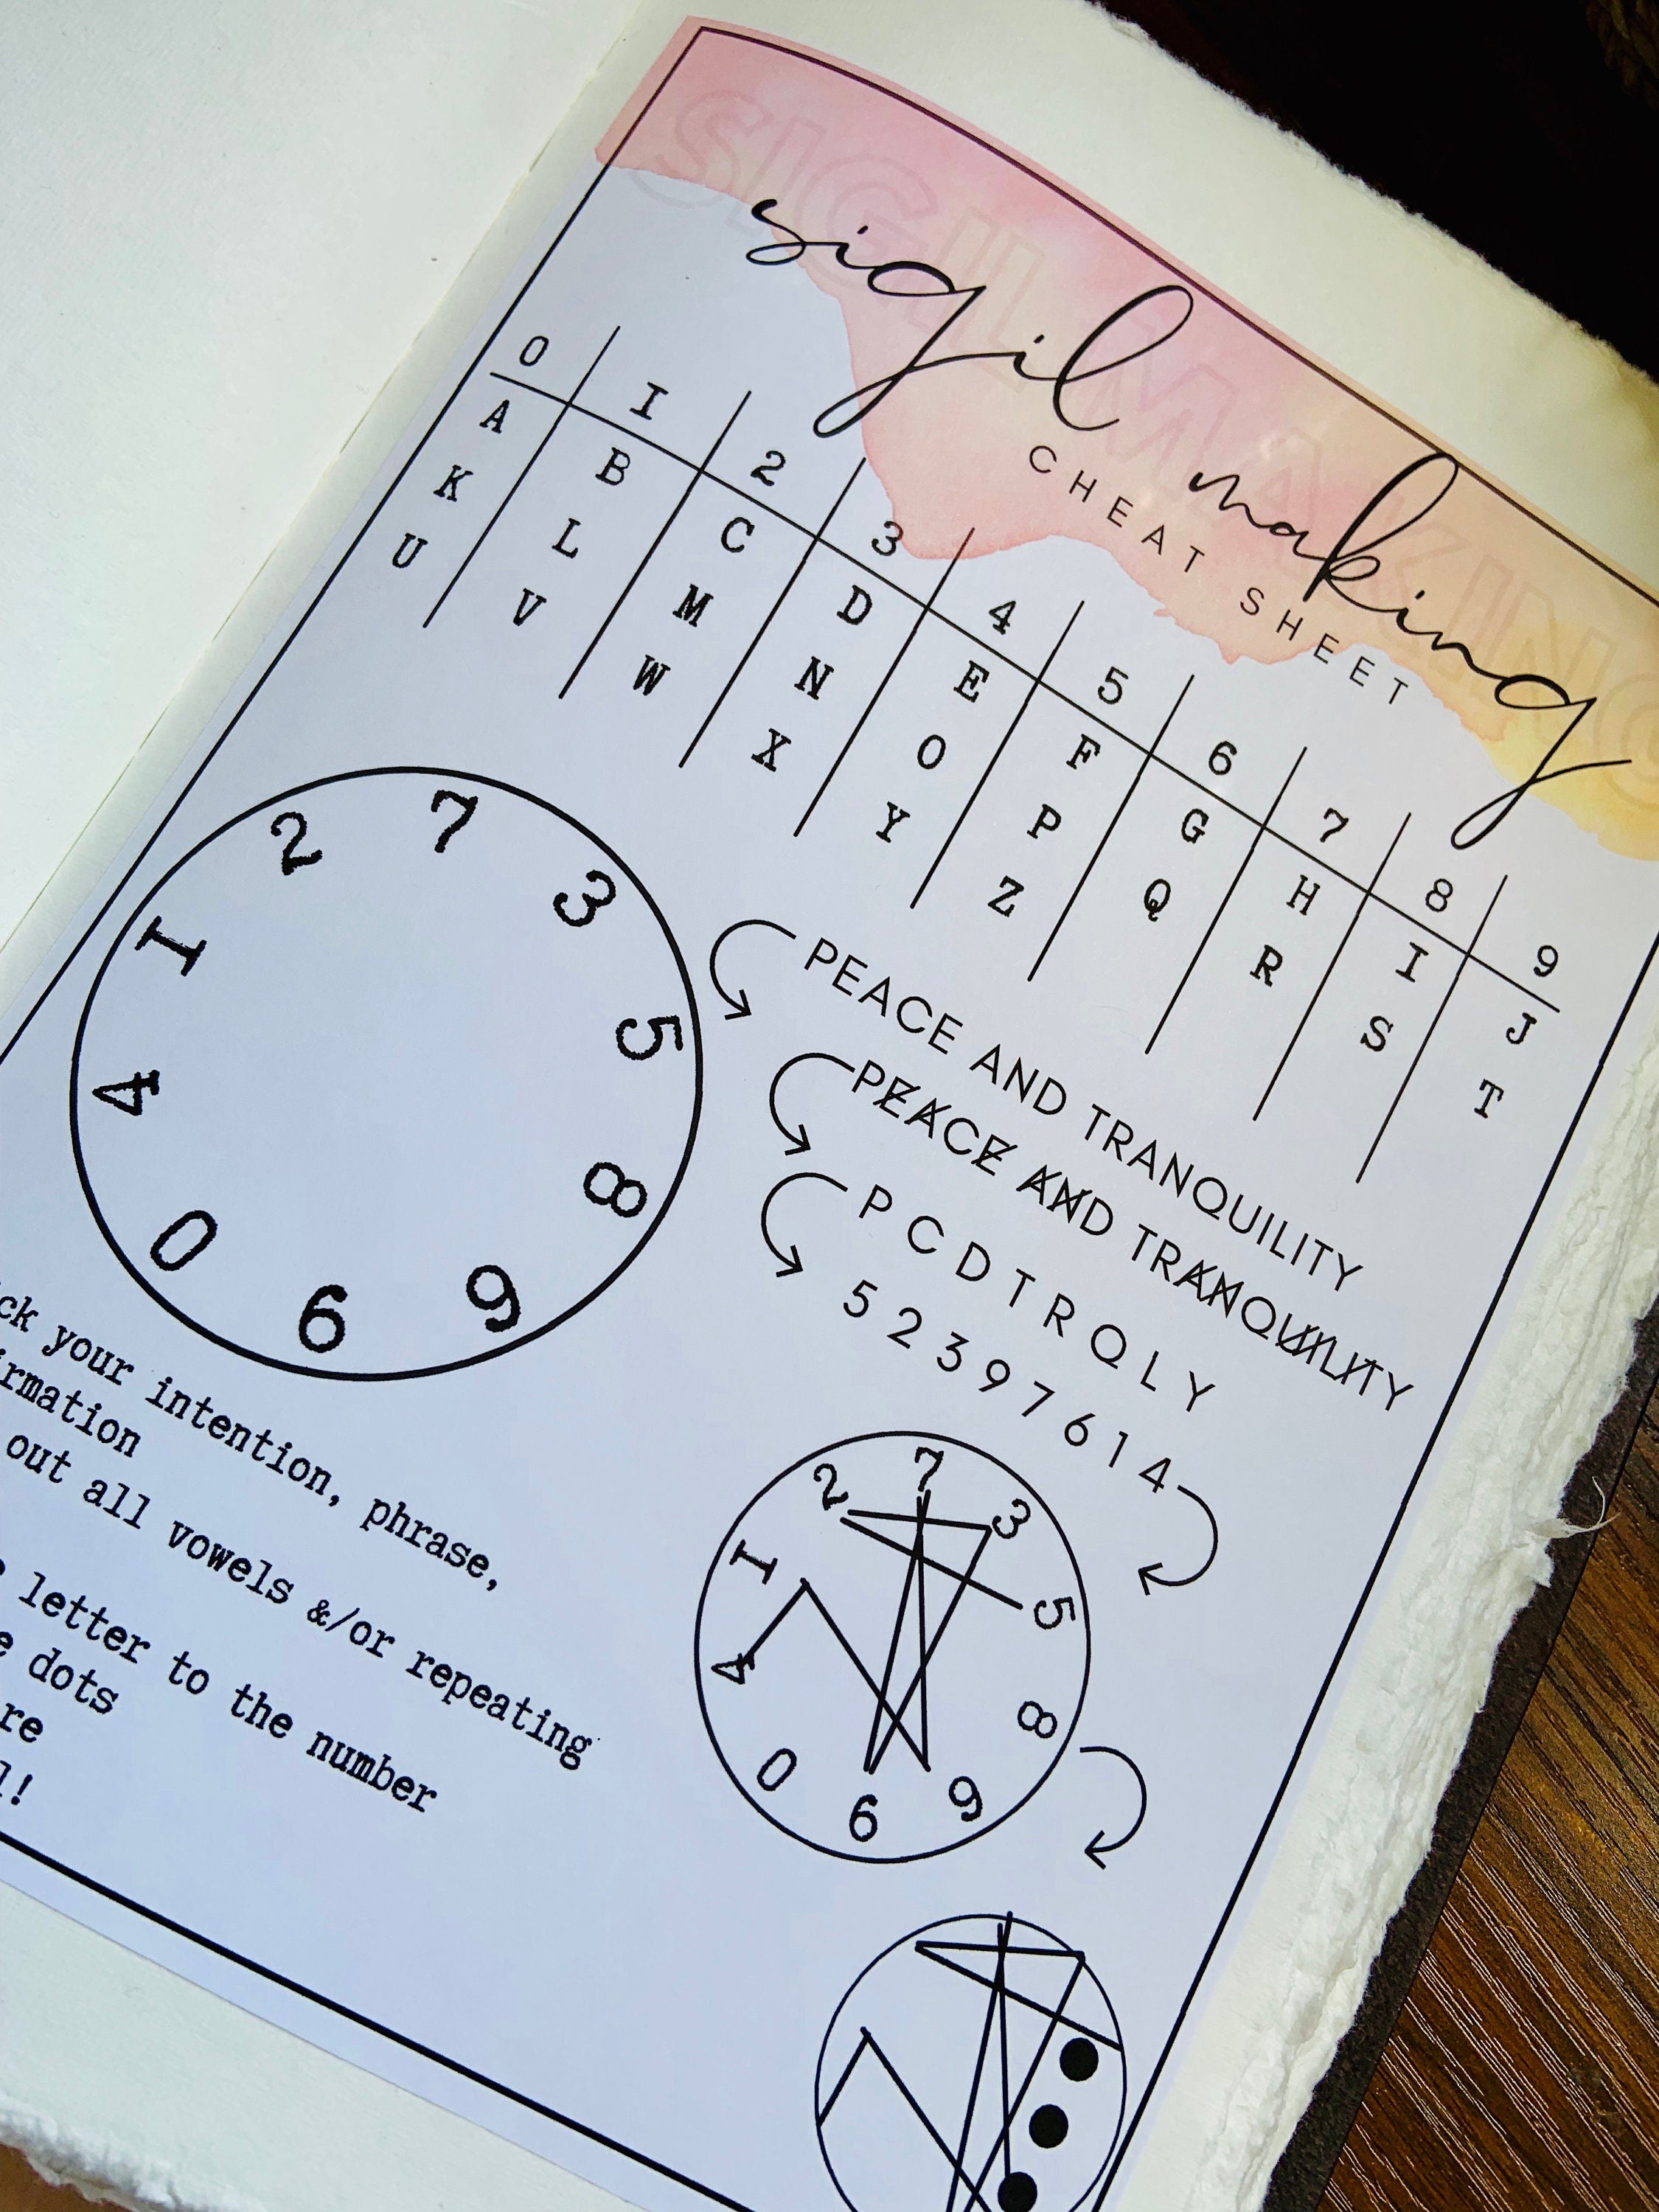 SIGIL MAKING
sigil making
CHEAT SHEET
0 I 2 3 4 5 6 7 8 9
A B C D E F G H I J
K L M N O P Q R S T
U V W X Y Z
2 7 3 5 8 9 6 0 4 I
PEACE AND TRANQUILITY
PEACE AND TRANQUILITY
P C D T R Q L Y
5 2 3 9 7 6 1 4
2 7 3 5 8 9 6 0 4 I
your intention, phrase,
out all vowels &/or repeating
letter to the number
dots